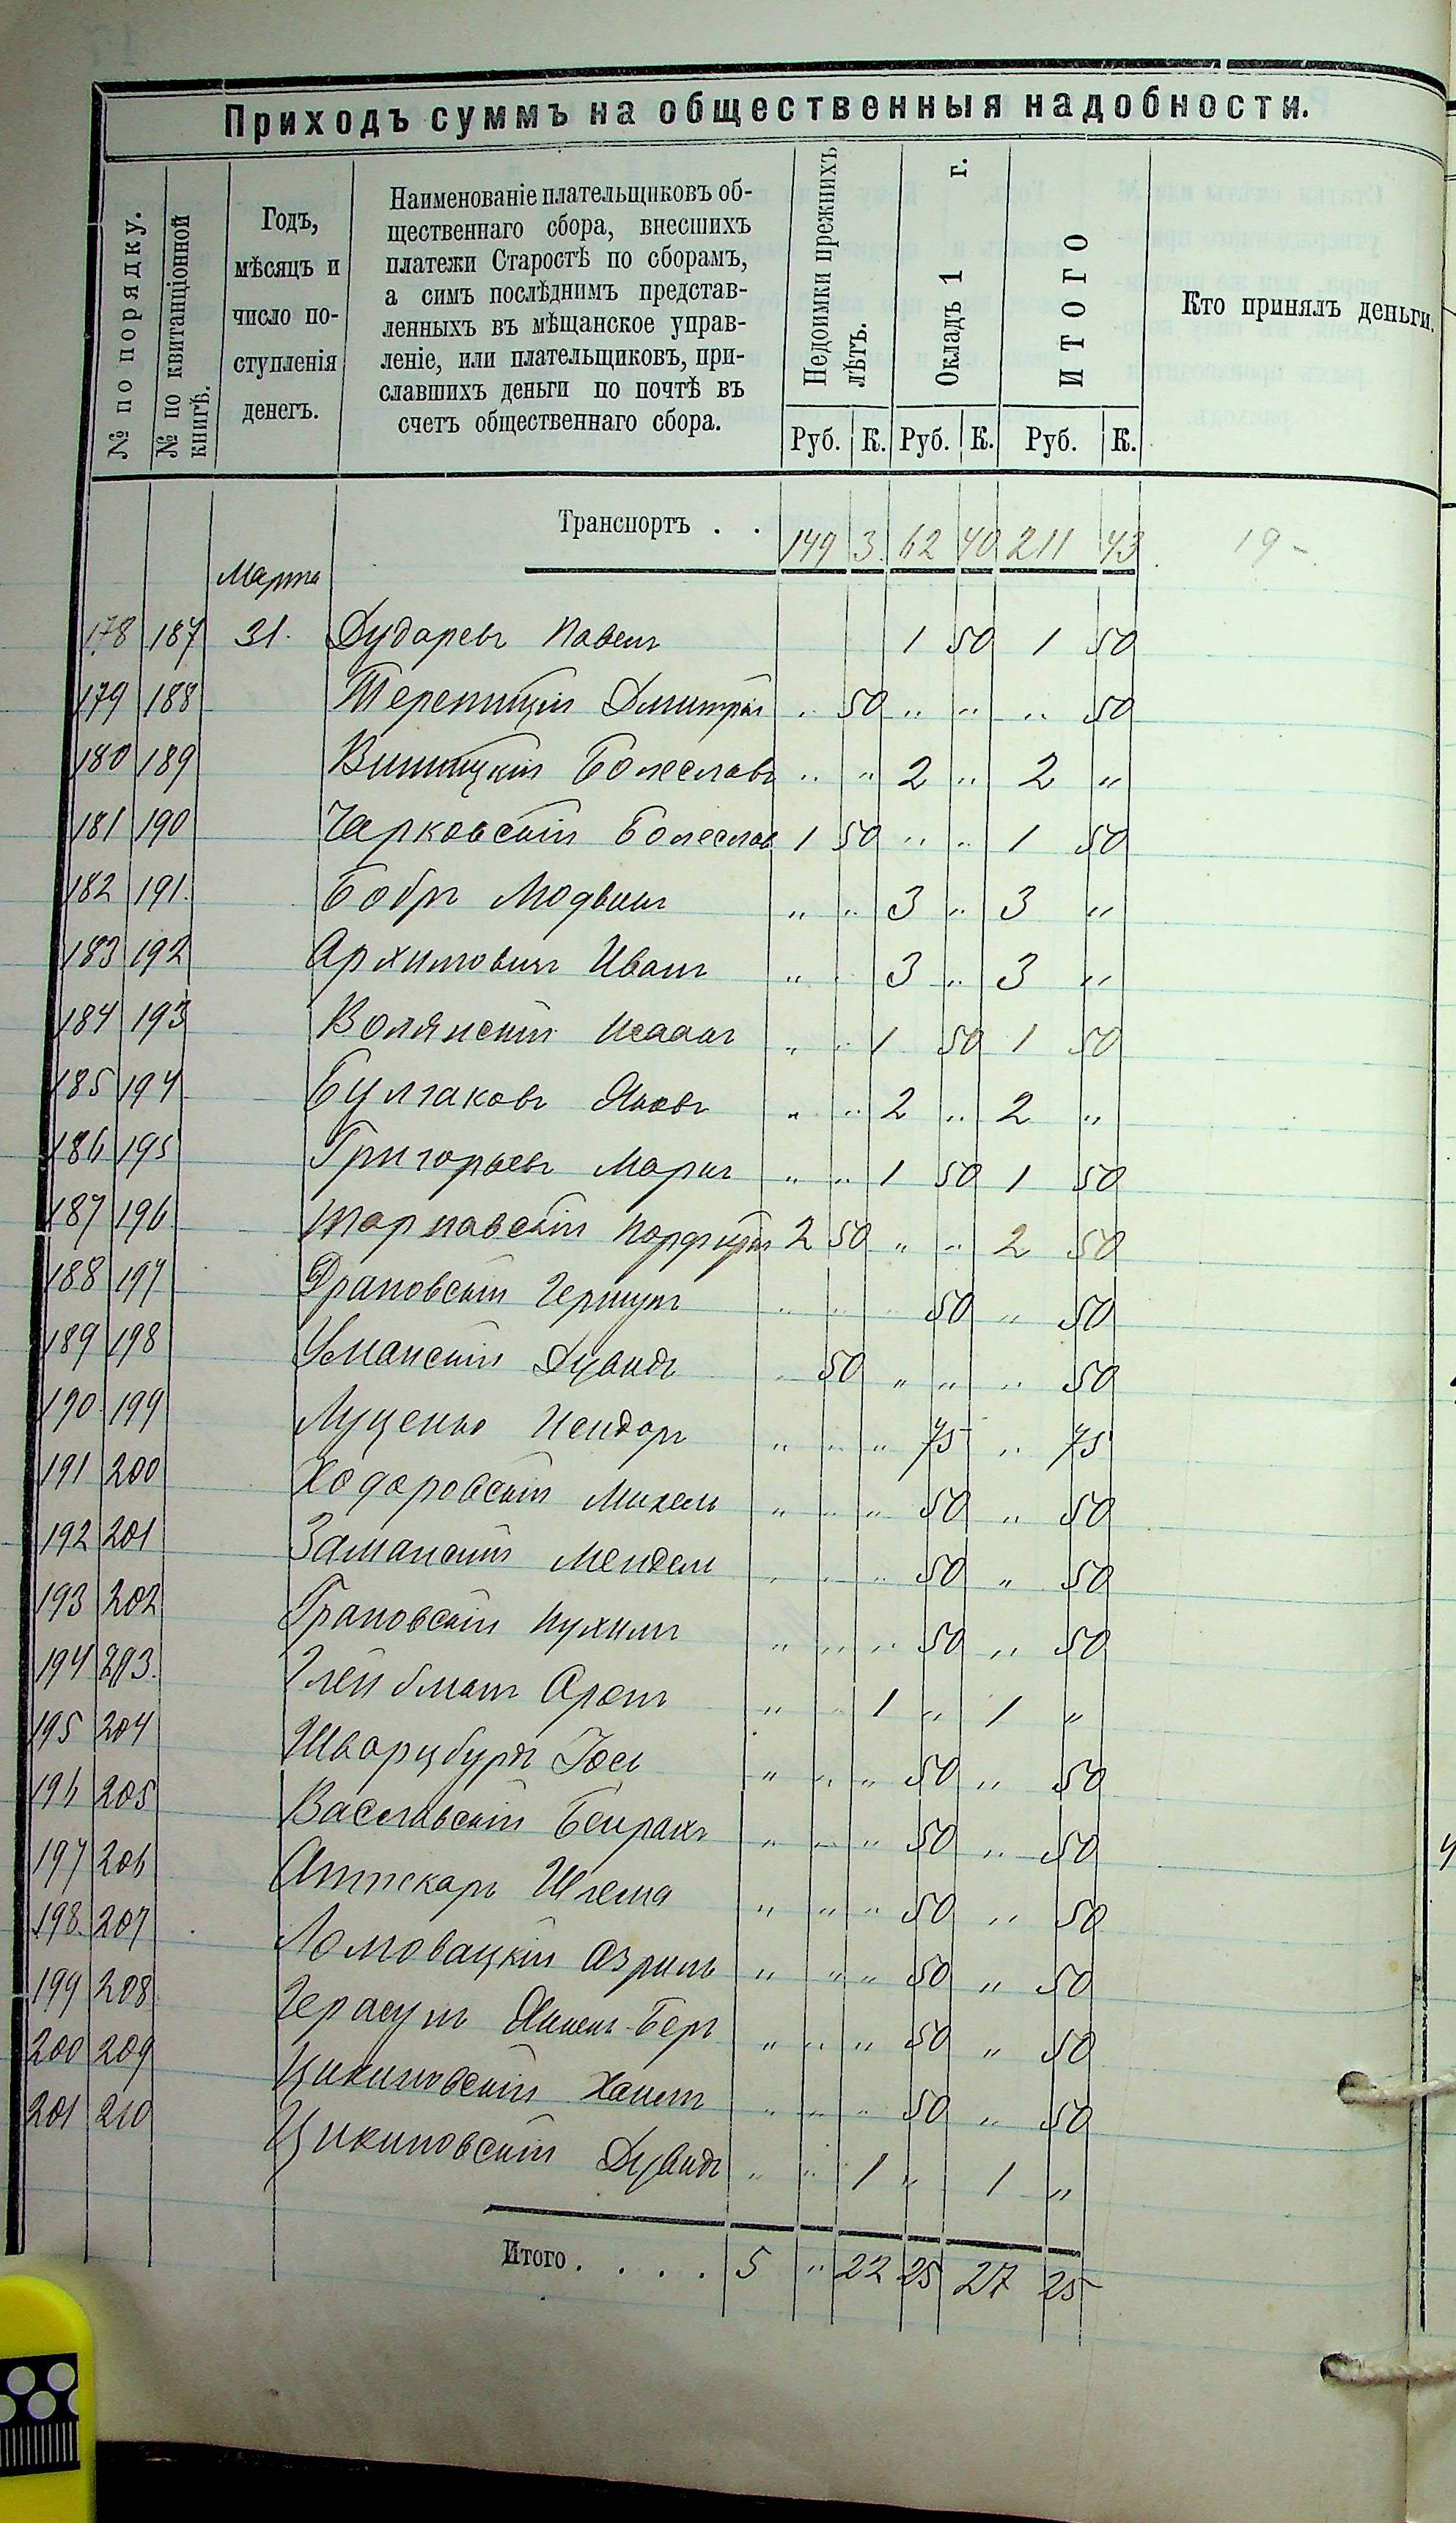 Приходъ суммъ на общественныя надобности.
№ по порядку.
№ по квитанціонной книгѣ.
Годъ,
мѣсяцъ и
число по-
ступленія
денегъ.
Наименованіе плательщиковъ об-
щественнаго сбора, внесшихъ
платежи Старостѣ по сборамъ,
а симъ послѣднимъ представ-
ленныхъ въ мѣщанское управ-
леніе, или плательщиковъ, при-
славшихъ деньги по почтѣ въ
счетъ общественнаго сбора.
Недоимки прежнихъ лѣтъ.
Окладъ 1 г.
ИТОГО
Кто принялъ деньги.
Руб. К. Руб. К. Руб. К.
Транспортъ . . 149 3 62 40 211 43 19-
Марта
178 187 31. Дударевъ Павелъ 1 50 1 50
179 188 Дмитрій „ 50 „ „ „ 50
180 189 Винницкій Болеславъ „ „ 2 „ 2 „
181 190 Чарковскій Болеслав 1 50 „ „ 1 50
182 191. Бобръ „ „ 3 „ 3 „
183 192 Архимовичъ Иванъ „ „ 3 „ 3 „
184 193 Волянскій Исаакъ „ „ 1 50 1 50
185 194 Булгаковъ Яковъ „ „ 2 „ 2 „
186 195 Григорьевъ Маркъ „ „ 1 50 1 50
187 196 Тарнавскій Порфирій 2 50 „ „ 2 50
188 197 Драновскій „ „ „ 50 „ 50
189 198 Уманскій Дувидъ „ 50 „ „ „ 50
190 199 Луценко Исидоръ „ „ „ 75 „ 75
191 200 Ходоровскій Михель „ „ „ 50 „ 50
192 201 Заманскій Мендель „ „ „ 50 „ 50
193 202 Грановскій „ „ „ 50 „ 50
194 203. Аронъ „ „ 1 „ 1 „
195 204 Шварцбурдъ Іось „ „ „ 50 „ 50
196 205 Ваславскій „ „ „ 50 „ 50
197 206 Аптекарь Шлема „ „ „ 50 „ 50
198. 207 Ломовацкій Азриль „ „ „ 50 „ 50
199 208 „ „ „ 50 „ 50
200 209 Цикиновскій „ „ „ 50 „ 50
201 210 Цикиновскій Дувидъ „ „ 1 „ 1 „
Итого . . . . 5 „ 22 25 27 25